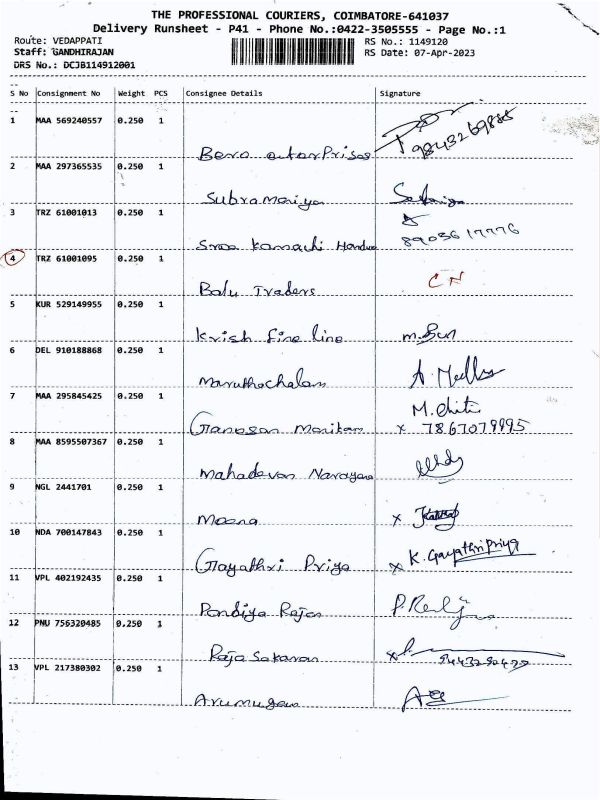 THE PROFESSIONAL COURIERS, COIMBATORE-641037
Delivery Runsheet - P41 - Phone No.:0422-3505555 - Page No.:1
Route: VEDAPPATI RS No.: 1149120
Staff: GANDHIRAJAN RS Date: 07-Apr-2023
DRS No.: DCJB114912001
S No Consignment No Weight PCS Consignee Details Signature
1 MAA 569240557 0.250 1
Bera enterprises 9843269885
2 MAA 297365535 0.250 1
Subramaniya
3 TRZ 61001013 0.250 1
Sree Kamachi 8903617776
4 TRZ 61001095 0.250 1
Balu Traders CN
5 KUR 529149955 0.250 1
Krish fine line
6 DEL 910188868 0.250 1
Maruthachalam A.
7 MAA 295845425 0.250 1 M.
Ganesan Manikam x 7867079995
8 MAA 8595507367 0.250 1
Mahadevan Narayana
9 NGL 2441701 0.250 1
Meena x
10 NDA 700147843 0.250 1
Gayathri Priya x K. Gayathri Priya
11 VPL 402192435 0.250 1
Pandiya Rajan
12 PNU 756320485 0.250 1
Raja Sekaran x
13 VPL 217380302 0.250 1
Arumugam